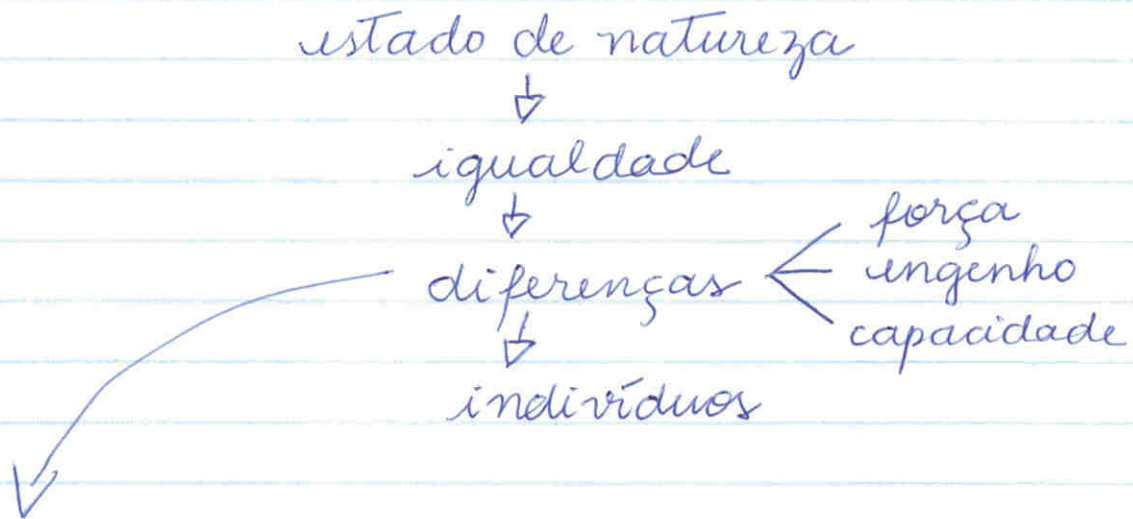 estado de natureza
igualdade
diferenças
força
engenho
capacidade
indivíduos